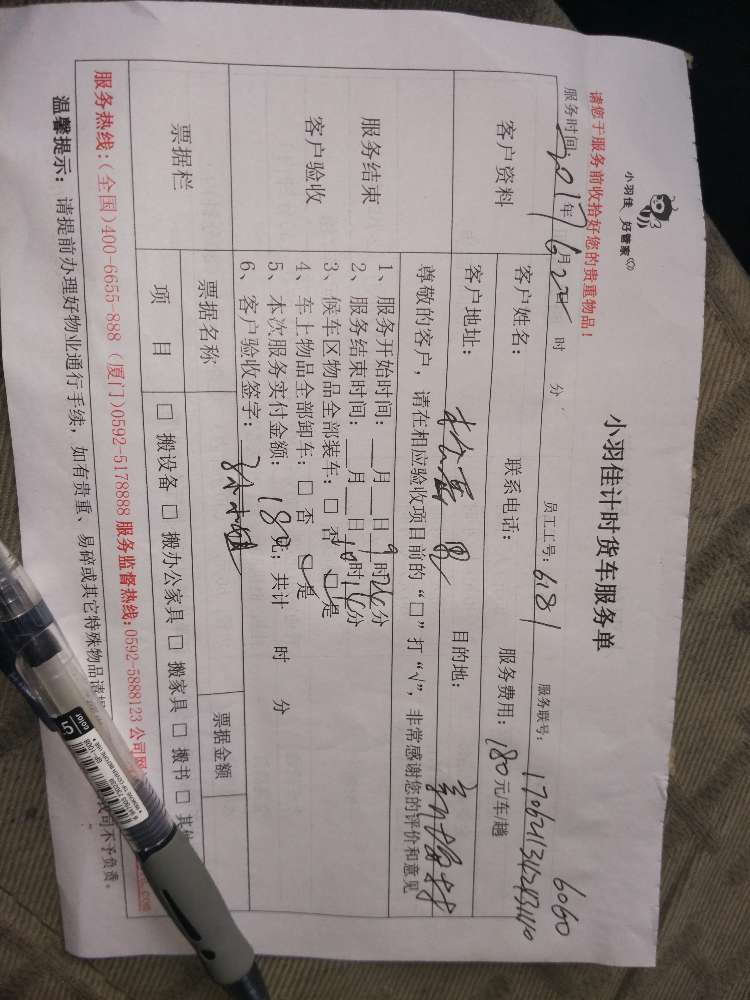 小羽佳 好管家
小羽佳计时货车服务单
请您于服务前收拾好您的贵重物品！
6060
服务时间：2017年6月22日 时 分 员工工号：6181 服务联号：
客户资料
客户姓名： 联系电话： 服务费用：180元/车/趟
客户地址： 目的地：
服务结束
客户验收
尊敬的客户，请在相应验收项目前的“□”打“√”，非常感谢您的评价和意见
1、服务开始时间：__月__日9时20分
2、服务结束时间：__月__日10时分
3、候车区物品全部装车：□ 否 □ 是
4、车上物品全部卸车：□ 否 □ 是
5、本次服务实付金额：180元；共计 时 分
6、客户验收签字：
票据栏
票据名称 票据金额
项 目 □ 搬设备 □ 搬办公家具 □ 搬家具 □ 搬书 □ 其他
服务热线：(全国)400-6655-888 (厦门)0592-5178888 服务监督热线：0592-5888123 公司网 .com
温馨提示：请提前办理好物业通行手续，如有贵重、易碎或其它特殊物品请 公司不予负责。
5
color
GP-1008